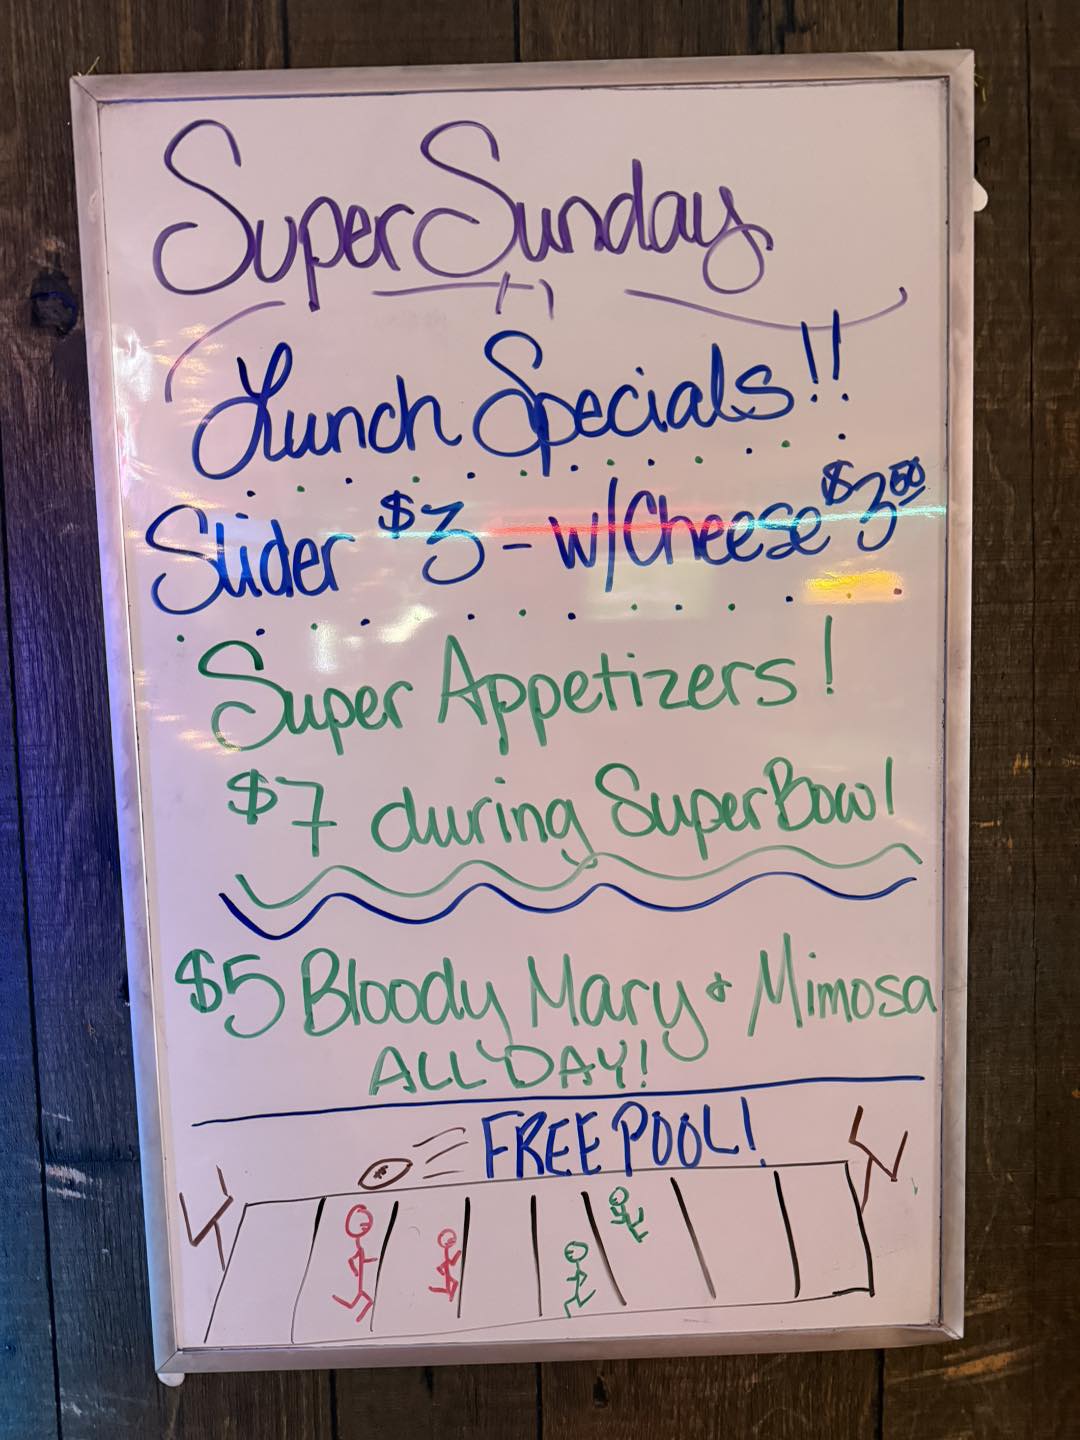 Super Sunday
Lunch Specials!!
Slider $3 - w/Cheese $3.50
Super Appetizers!
$7 during SuperBowl
$5 Bloody Mary & Mimosa
ALL DAY!
FREE POOL!